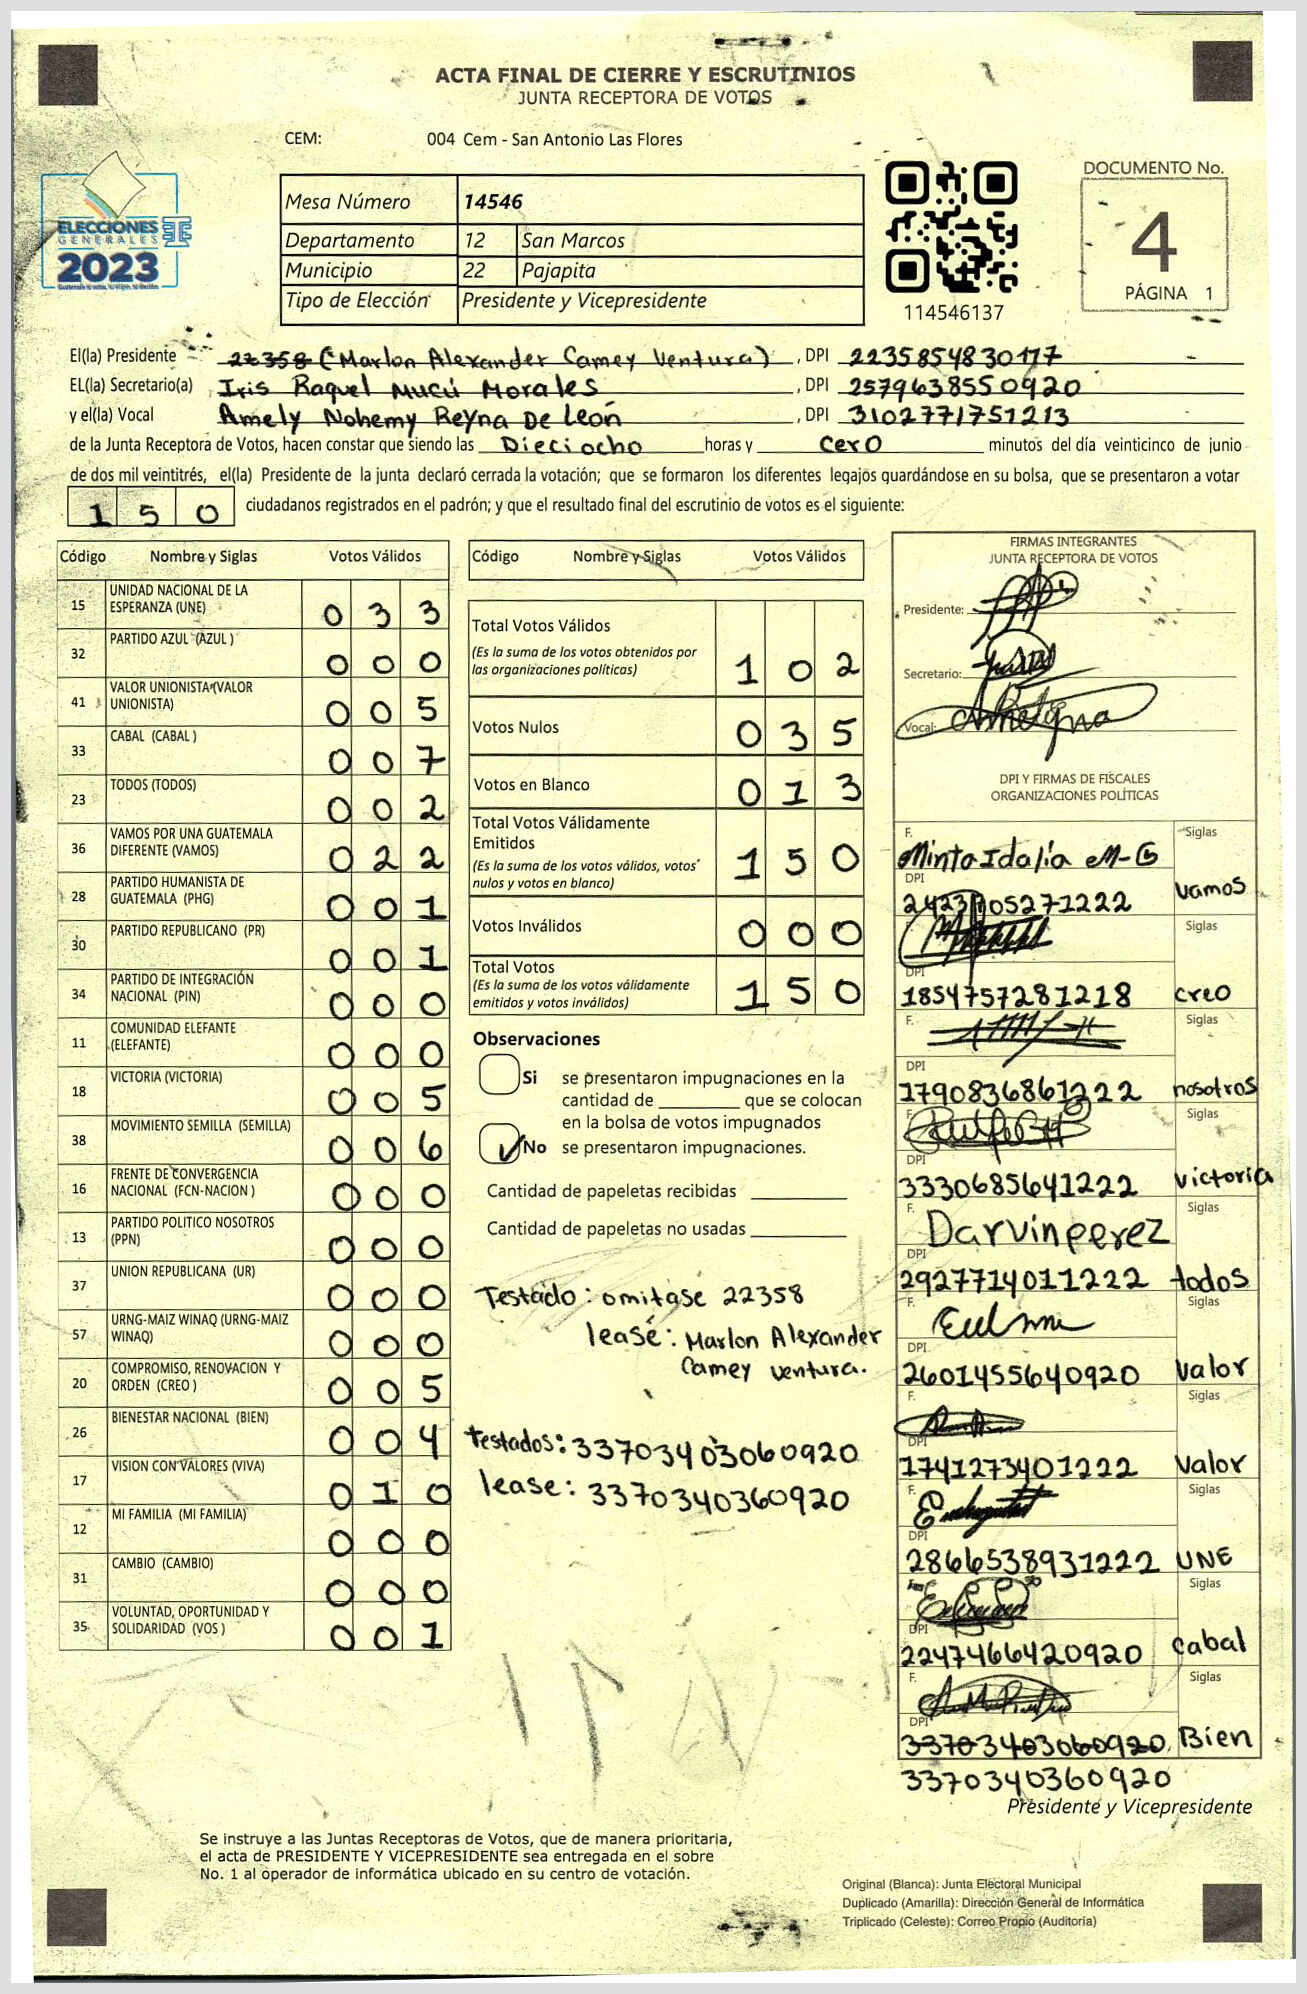 ACTA FINAL DE CIERRE Y ESCRUTINIOS
JUNTA RECEPTORA DE VOTOS
CEM: 004 Cem - San Antonio Las Flores
ELECCIONES
GENERALES
2023
Mesa Número 14546
Departamento 12 San Marcos
Municipio 22 Pajapita
Tipo de Elección Presidente y Vicepresidente
114546137
DOCUMENTO No.
4
PÁGINA 1
El(la) Presidente 22358 (Marlon Alexander Camey Ventura) , DPI 2235854830117
EL(la) Secretario(a) Iris Raquel Mucú Morales , DPI 2579638550920
y el(la) Vocal Amely Nohemy Reyna De León , DPI 3102771751213
de la Junta Receptora de Votos, hacen constar que siendo las Dieciocho horas y cero minutos del día veinticinco de junio
de dos mil veintitrés, el(la) Presidente de la junta declaró cerrada la votación; que se formaron los diferentes legajos guardándose en su bolsa, que se presentaron a votar
150 ciudadanos registrados en el padrón; y que el resultado final del escrutinio de votos es el siguiente:
Código Nombre y Siglas Votos Válidos
15 UNIDAD NACIONAL DE LA ESPERANZA (UNE) 0 3 3
32 PARTIDO AZUL (AZUL ) 0 0 0
41 VALOR UNIONISTA (VALOR UNIONISTA) 0 0 5
33 CABAL (CABAL ) 0 0 7
23 TODOS (TODOS) 0 0 2
36 VAMOS POR UNA GUATEMALA DIFERENTE (VAMOS) 0 2 2
28 PARTIDO HUMANISTA DE GUATEMALA (PHG) 0 0 1
30 PARTIDO REPUBLICANO (PR) 0 0 1
34 PARTIDO DE INTEGRACIÓN NACIONAL (PIN) 0 0 0
11 COMUNIDAD ELEFANTE (ELEFANTE) 0 0 0
18 VICTORIA (VICTORIA) 0 0 5
38 MOVIMIENTO SEMILLA (SEMILLA) 0 0 6
16 FRENTE DE CONVERGENCIA NACIONAL (FCN-NACION ) 0 0 0
13 PARTIDO POLITICO NOSOTROS (PPN) 0 0 0
37 UNION REPUBLICANA (UR) 0 0 0
57 URNG-MAIZ WINAQ (URNG-MAIZ WINAQ) 0 0 0
20 COMPROMISO, RENOVACION Y ORDEN (CREO ) 0 0 5
26 BIENESTAR NACIONAL (BIEN) 0 0 4
17 VISION CON VALORES (VIVA) 0 1 0
12 MI FAMILIA (MI FAMILIA) 0 0 0
31 CAMBIO (CAMBIO) 0 0 0
35 VOLUNTAD, OPORTUNIDAD Y SOLIDARIDAD (VOS ) 0 0 1
Código Nombre y Siglas Votos Válidos
Total Votos Válidos
(Es la suma de los votos obtenidos por
las organizaciones políticas) 1 0 2
Votos Nulos 0 3 5
Votos en Blanco 0 1 3
Total Votos Válidamente
Emitidos
(Es la suma de los votos válidos, votos
nulos y votos en blanco) 1 5 0
Votos Inválidos 0 0 0
Total Votos
(Es la suma de los votos válidamente
emitidos y votos inválidos) 1 5 0
Observaciones
Si se presentaron impugnaciones en la
cantidad de ________ que se colocan
en la bolsa de votos impugnados
No se presentaron impugnaciones.
Cantidad de papeletas recibidas
Cantidad de papeletas no usadas
Testado: omitase 22358
lease: Marlon Alexander
Camey ventura.
testados: 33703403060920
lease: 3370340360920
FIRMAS INTEGRANTES
JUNTA RECEPTORA DE VOTOS
Presidente:
Secretario:
Vocal:
DPI Y FIRMAS DE FISCALES
ORGANIZACIONES POLÍTICAS
F. Minta Idalia M-G Siglas
DPI 2423705271222 vamos
Siglas
DPI 1854757281218 creo
F. Siglas
DPI 1790836861222 nosotros
F. Siglas
DPI 3330685641222 victoria
F. Darvin perez Siglas
DPI 2927714011222 todos
F. Siglas
DPI 2601455640920 valor
F. Siglas
DPI 1741273401222 valor
F. Siglas
DPI 2866538931222 UNE
Siglas
DPI 2247466420920 cabal
F. Siglas
DPI 33703403060920 Bien
3370340360920
Presidente y Vicepresidente
Se instruye a las Juntas Receptoras de Votos, que de manera prioritaria,
el acta de PRESIDENTE Y VICEPRESIDENTE sea entregada en el sobre
No. 1 al operador de informática ubicado en su centro de votación.
Original (Blanca): Junta Electoral Municipal
Duplicado (Amarilla): Dirección General de Informática
Triplicado (Celeste): Correo Propio (Auditoría)